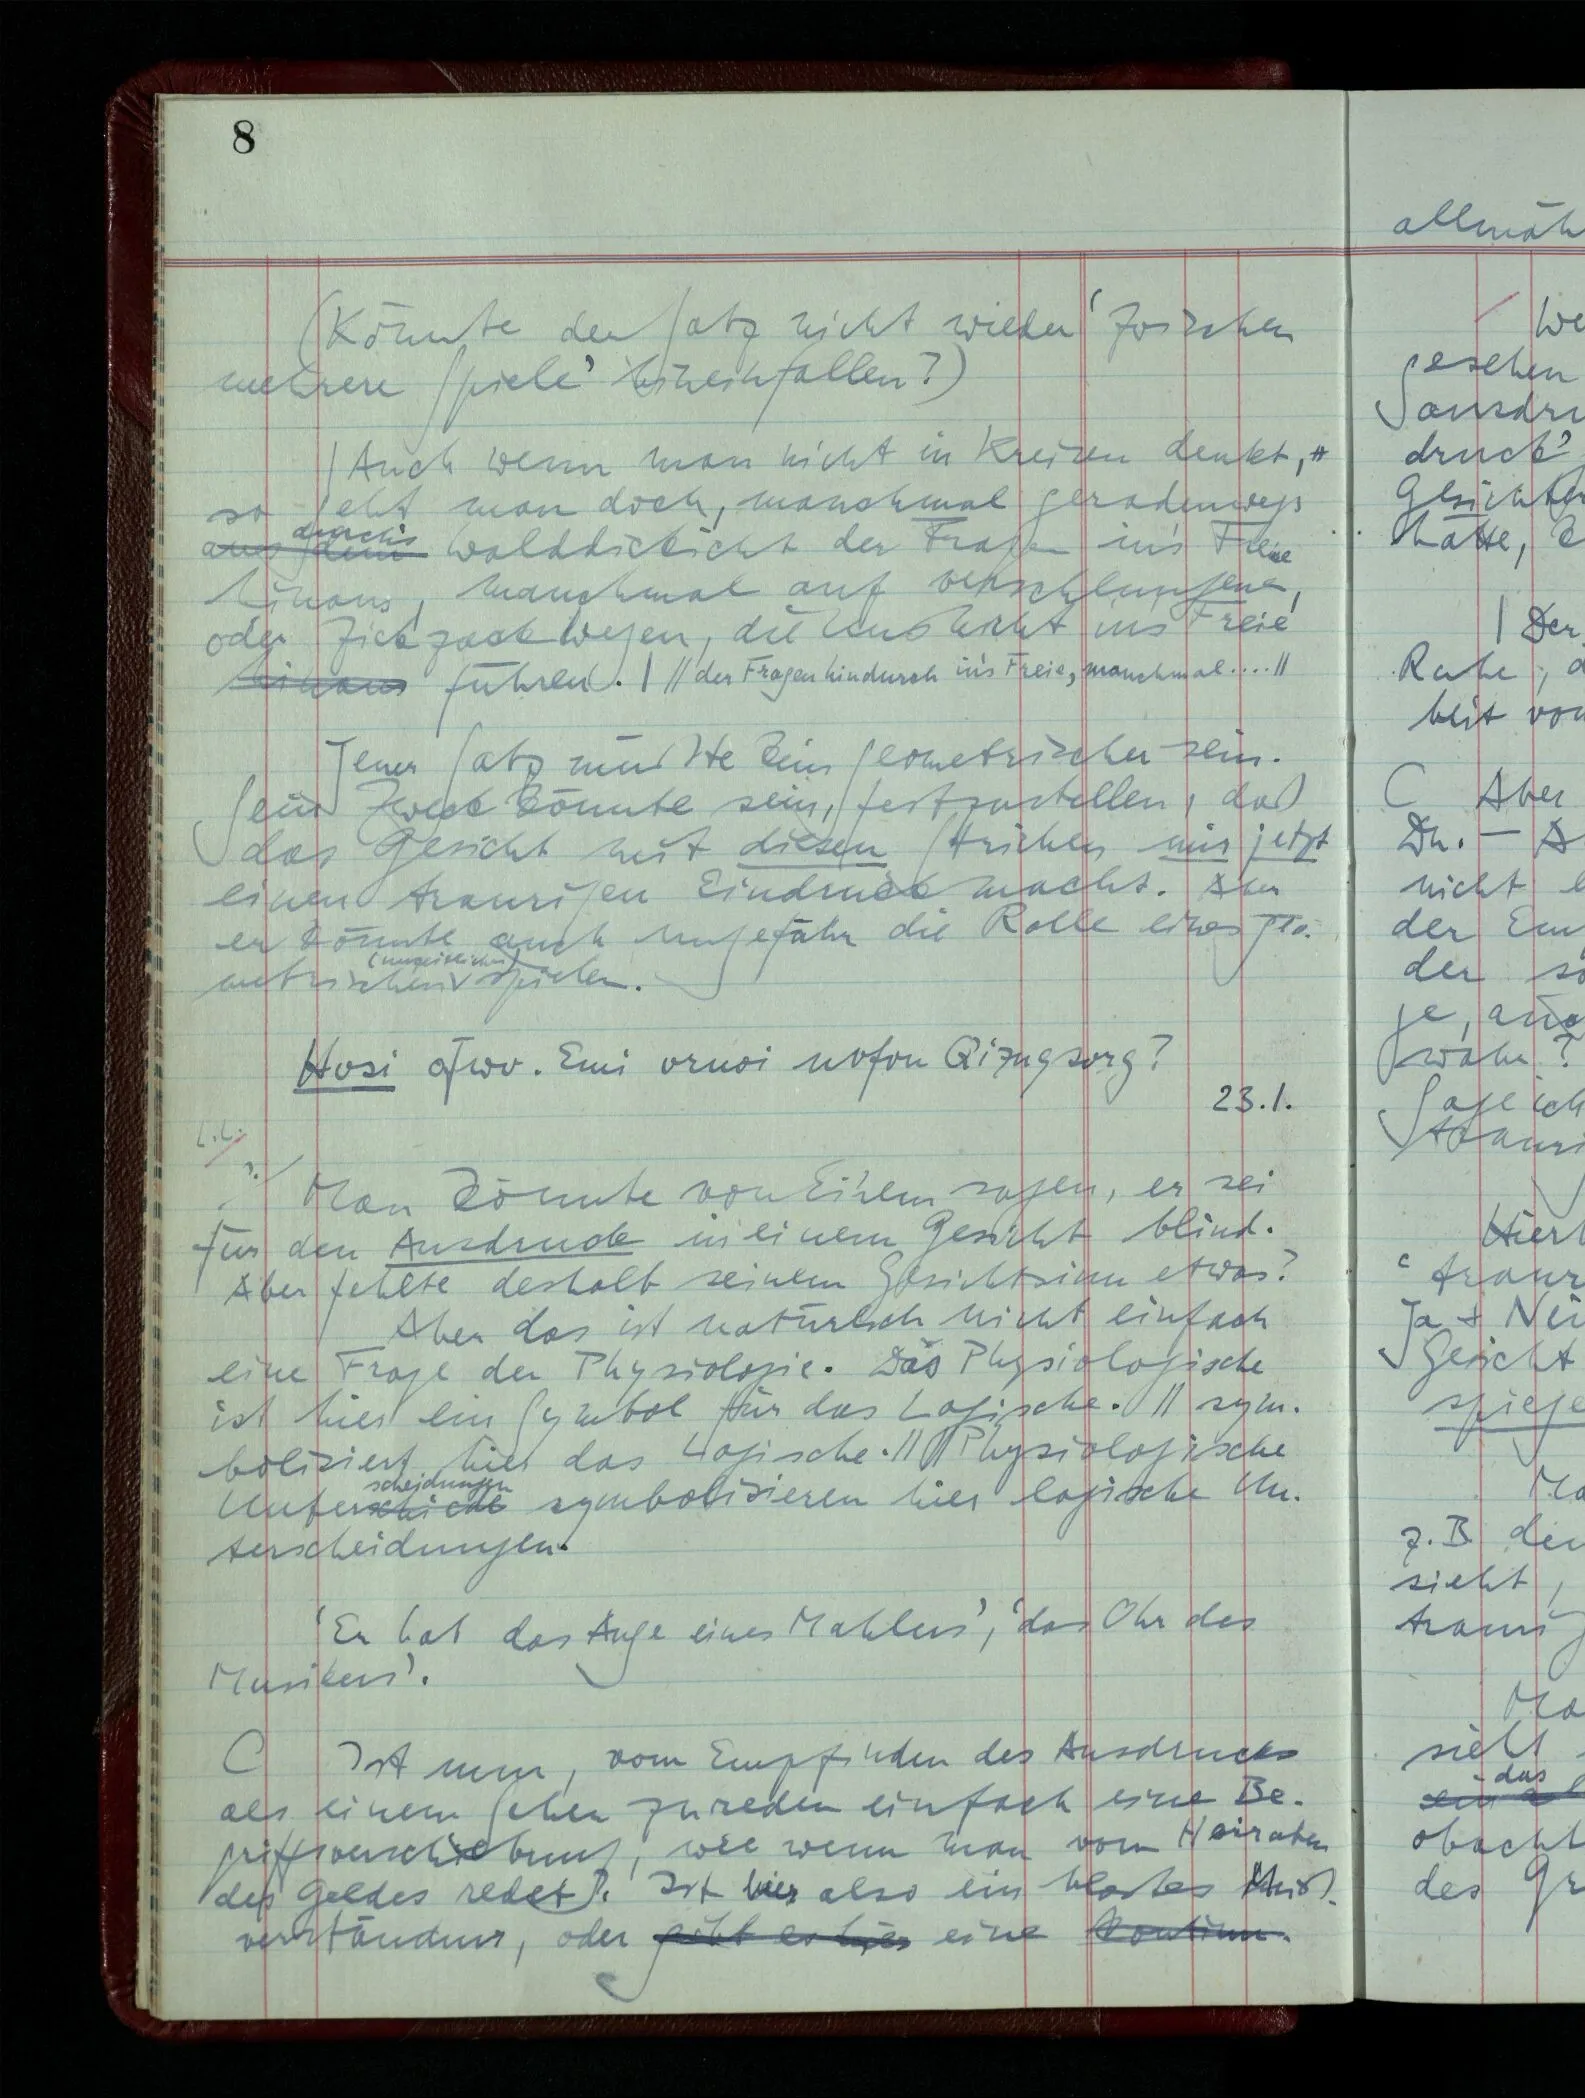 8
(Könnte der Satz nicht wieder ‘zwischen
mehrere Spiele’ hineinfallen?)
| Auch wenn man nicht in Kreisen denkt,
so geht man doch, manchmal geradenwegs
aus dem durch's Walddickicht der Fragen in's Freie
hinaus, manchmal auf verschlungene,
oder Zickzackwegen, die uns nicht ins Freie
hinaus führen. | // der Fragen hindurch in's Freie, manchmal .... //
Jener Satz müßte kein geometrischer sein.
Sein Zweck könnte sein, festzustellen, daß
das Gesicht mit diesen Strichen mir jetzt
einen traurigen Eindruck macht. Aber
er könnte auch ungefähr die Rolle eines geo-
metrischen (unzeitlichen) spielen.
Hosi qfwv. Emi ornoi nofon Qizngsorg?
23.1.
? / Man könnte von Einem sagen, er sei
für den Ausdruck in einem Gesicht blind.
Aber fehlte deshalb seinem Gesichtssinn etwas?
Aber das ist natürlich nicht einfach
eine Frage der Physiologie. Das Physiologische
ist hier ein Symbol für das Logische. // sym-
bolisiert hier das Logische. // // Physiologische
Unterschiede scheidungen symbolisieren hier logische Un-
terscheidungen.
‘Er hat das Auge eines Mahlers’, ‘das Ohr des
Musikers’.
C Ist nun, vom Empfinden des Ausdrucks
als einem Sehen zu reden einfach eine Be-
griffsverschiebung, wie wenn man vom Heiraten
des Geldes redet? Ist hier also ein bloßes Miß-
verständnis, oder gibt es hier eine Kontinu-
allmäh
We
gesehen
druck’
hätte,
| Der
Ruhe, d
heit von
C Aber
nicht
der
der so
je,
wahr?
Sage ich
trauri
Hier
‘traur
Ja & Nei
Gesicht
spiege
Ma
z.B. den
sieht,
traurig
Ma
sieht
das
obacht
des Gr